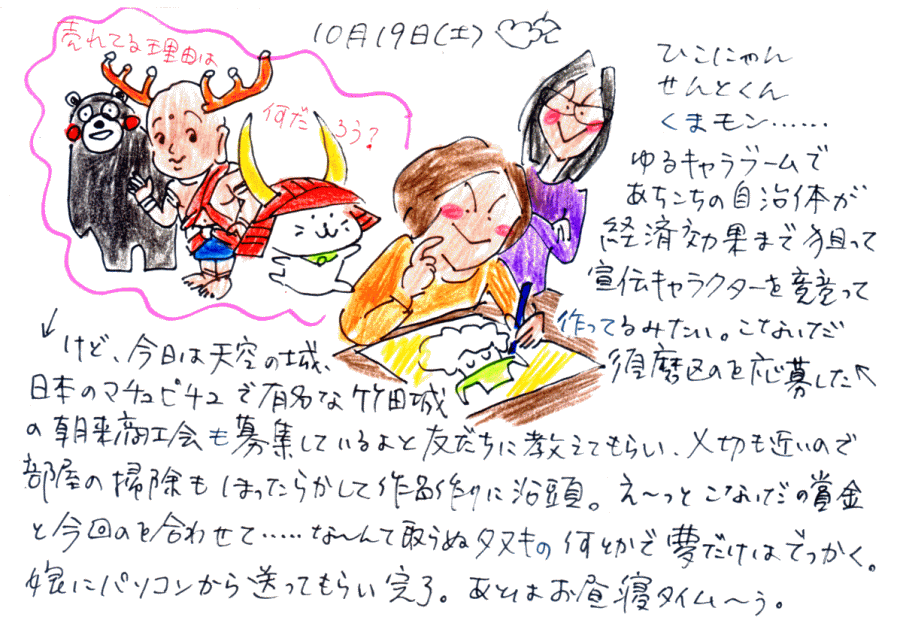 10月19日(土)
売れてる理由は
何だろう?
ひこにゃん
せんとくん
くまモン……
ゆるキャラブームで
あちこちの自治体が
経済効果まで狙って
宣伝キャラクターを競って
作ってるみたい。こないだ
須磨区のを応募した
けど、今日は天空の城、
日本のマチュピチュで有名な竹田城
の朝来商工会も募集しているよと友だちに教えてもらい、〆切も近いので
部屋の掃除もほったらかして作品作りに没頭。え〜っとこないだの賞金
と今回のを合わせて……な〜んて取らぬタヌキの何とかで夢だけはでっかく。
娘にパソコンから送ってもらい完了。あとはお昼寝タイム〜う。